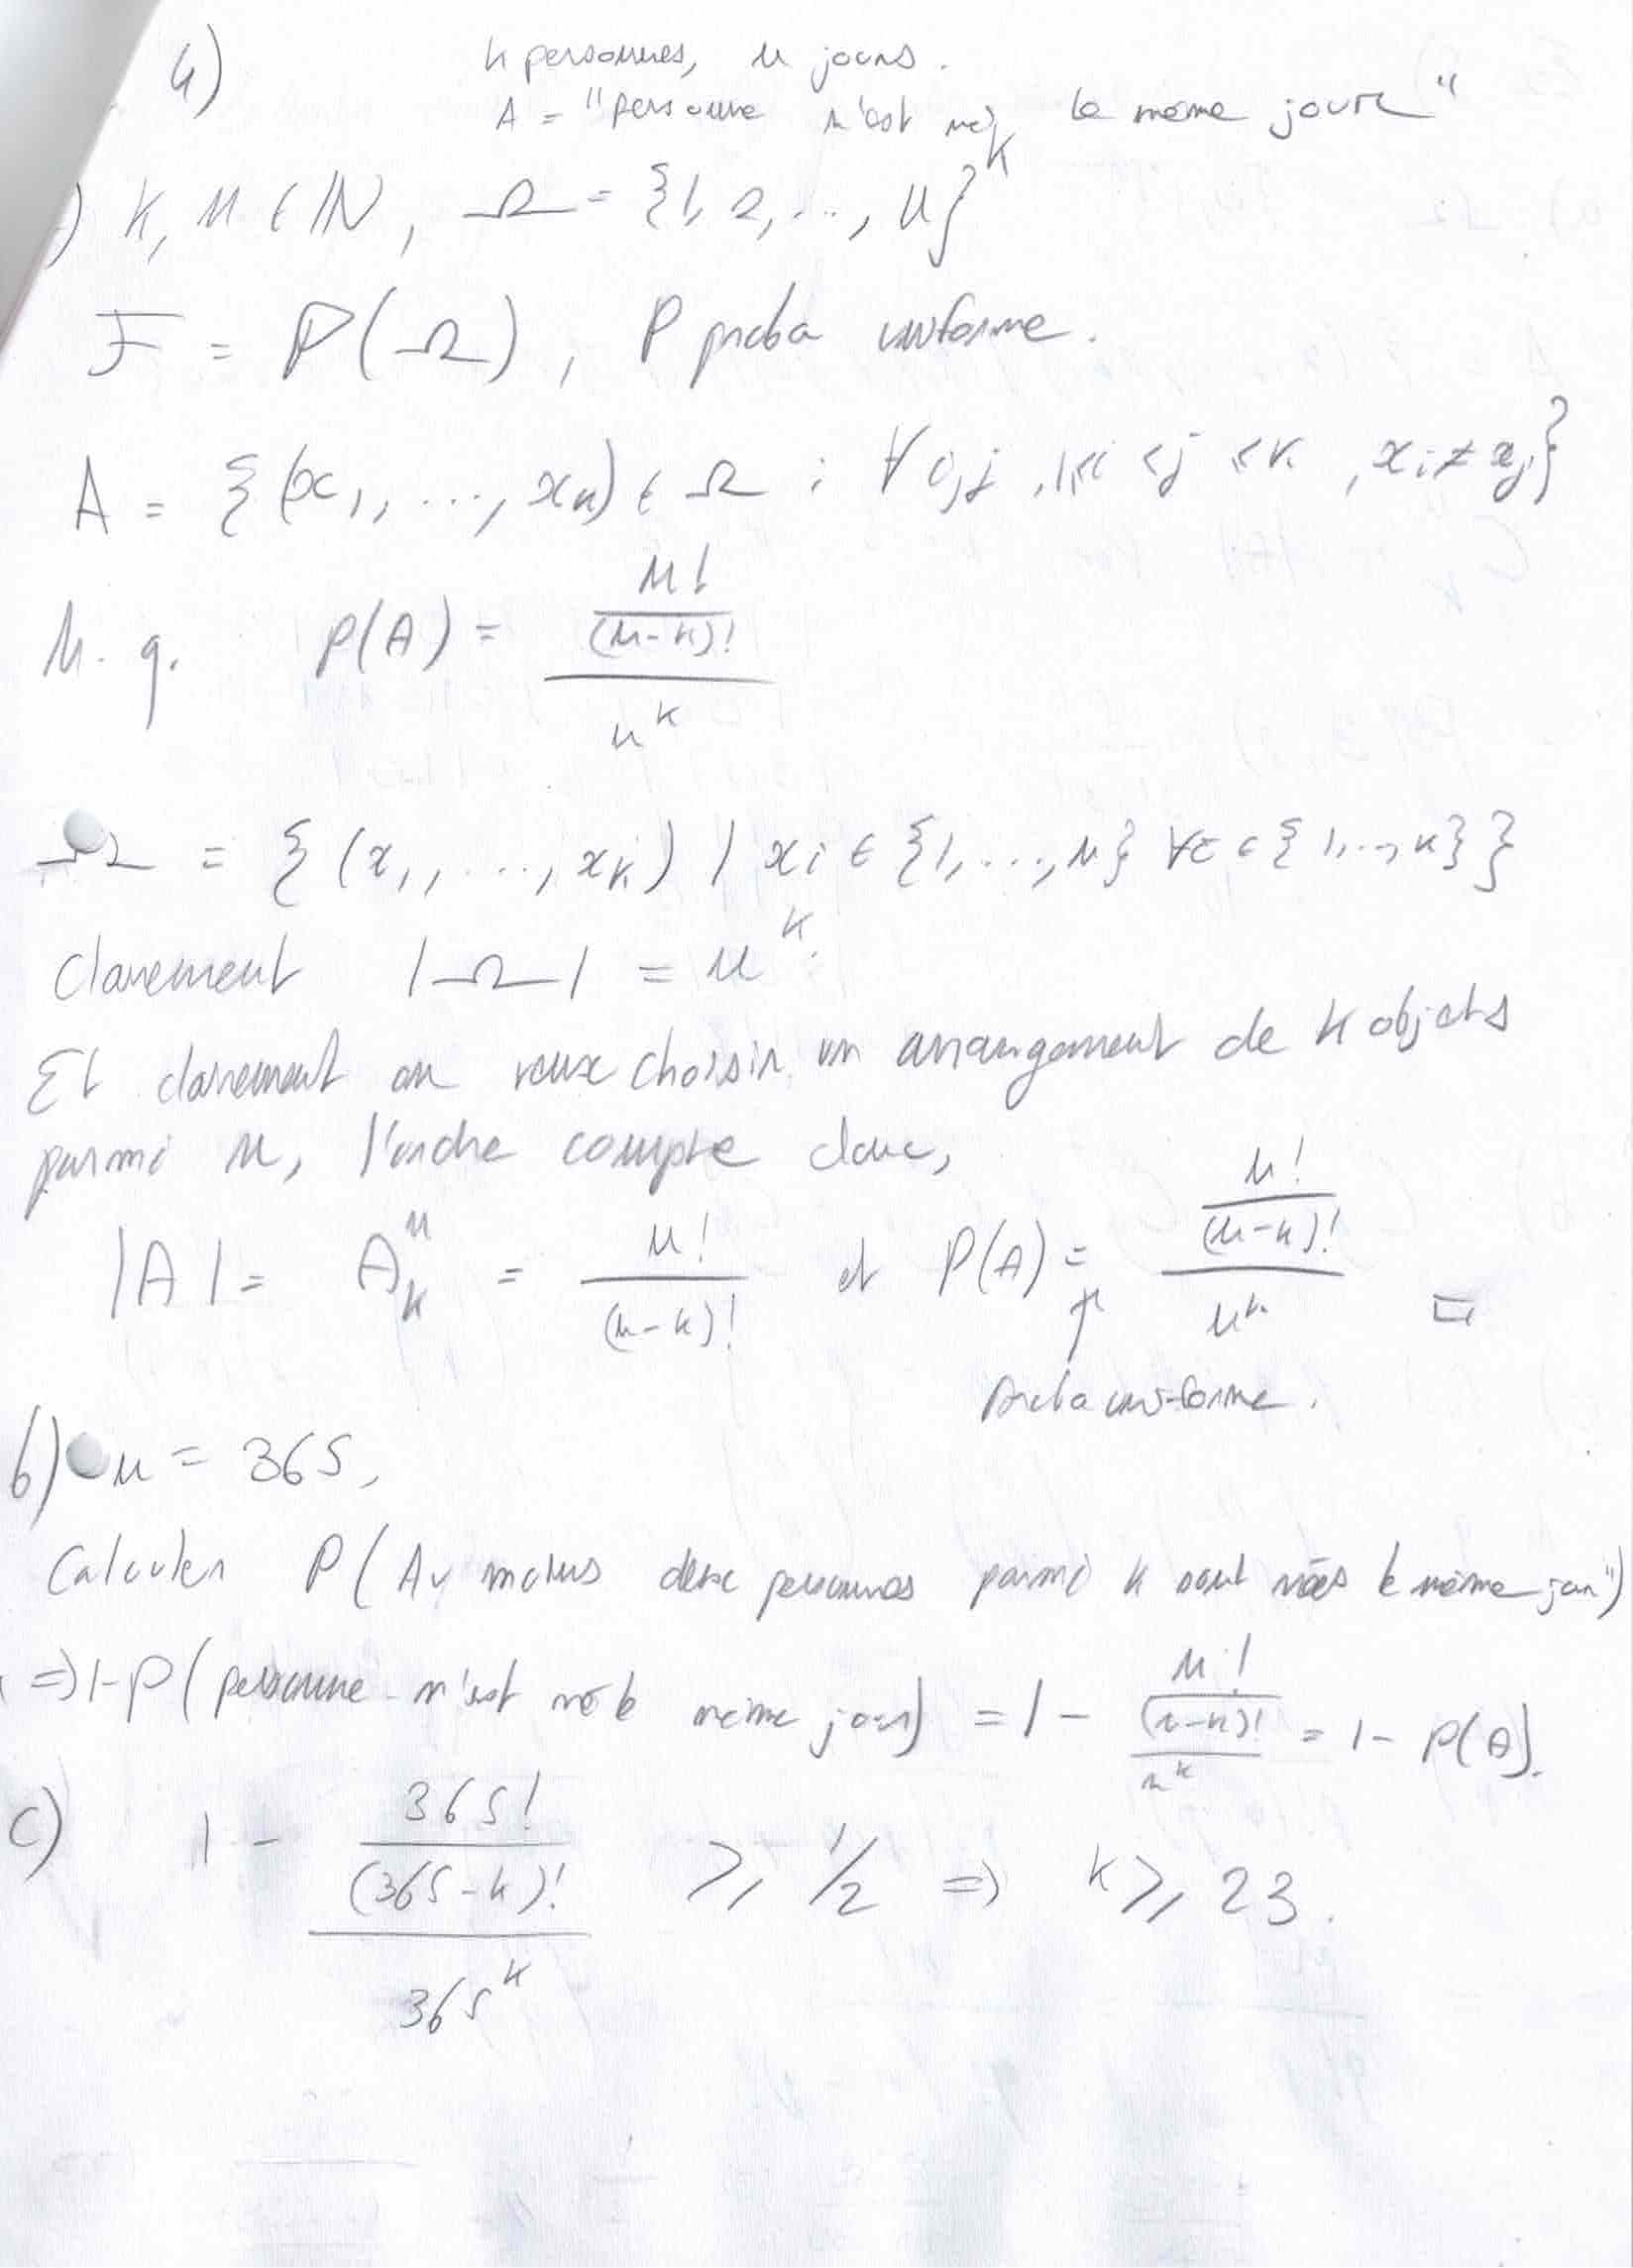 4) k personnes, n jours.
A = "personne n'est né le même jour"
) k, n ∈ ℕ, Ω = {1, 2, ..., n}^k
F = P(Ω), P proba uniforme.
A = {(x_1, ..., x_k) ∈ Ω ; ∀ i,j, 1≤i<j≤k, x_i ≠ x_j}
M.q. P(A) = (n!/(n-k)!)/n^k
Ω = {(x_1, ..., x_k) / x_i ∈ {1, ..., n} ∀i ∈ {1, .., k}}
Clairement |Ω| = n^k.
Et clairement on veux choisir un arrangement de k objets
parmi n, l'ordre compte donc,
|A| = A^n_k = n!/(n-k)! et P(A) = (n!/(n-k)!)/n^k □
↑
Proba uniforme.
b) n = 365,
Calculer P(Au moins deux personnes parmi k sont nées le même jour")
=> 1-P(personne n'est né le même jour) = 1 - (n!/(n-k)!)/n^k = 1 - P(A).
c) 1 - (365!/(365-k)!)/365^k ≥ 1/2 => k ≥ 23.